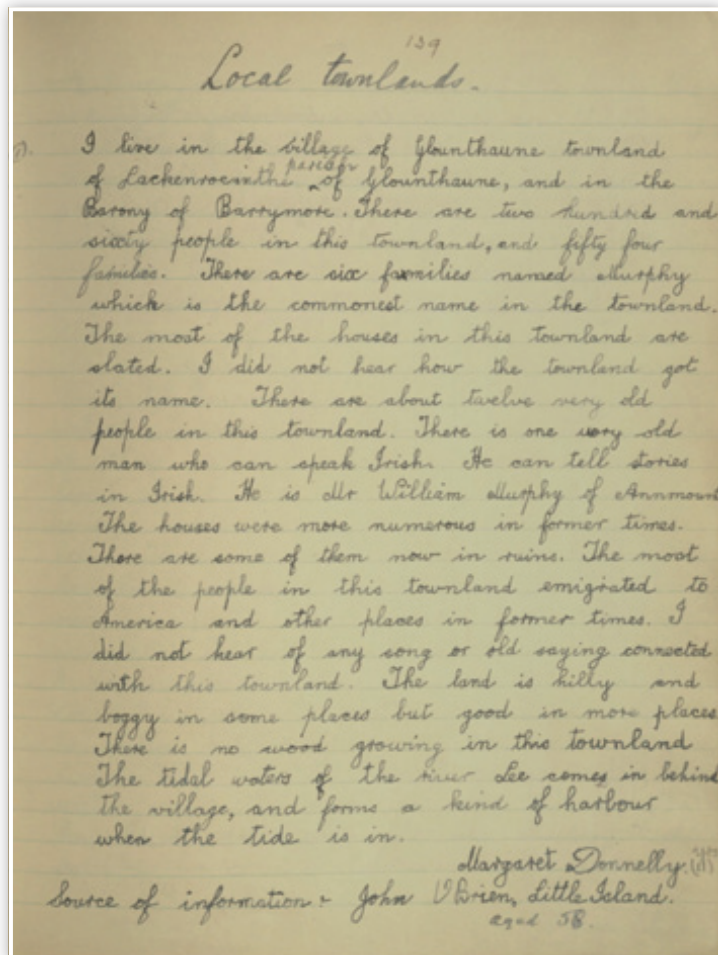 139
Local townlands.
I live in the village of Glounthaune townland
of Lackenroe in the parish of Glounthaune, and in the
Barony of Barrymore. There are two hundred and
sixty people in this townland, and fifty four
families. There are six families named Murphy
which is the commonest name in the townland.
The most of the houses in this townland are
slated. I did not hear how the townland got
its name. There are about twelve very old
people in this townland. There is one very old
man who can speak Irish. He can tell stories
in Irish. He is Mr William Murphy of Annmount
The houses were more numerous in former times.
There are some of them now in ruins. The most
of the people in this townland emigrated to
America and other places in former times. I
did not hear of any song or old saying connected
with this townland. The land is hilly and
boggy in some places but good in more places.
There is no wood growing in this townland
The tidal waters of the river Lee comes in behind
the village, and forms a kind of harbour
when the tide is in.
Margaret Donnelly.
Source of information:- John O'Brien, Little Island.
aged 58.